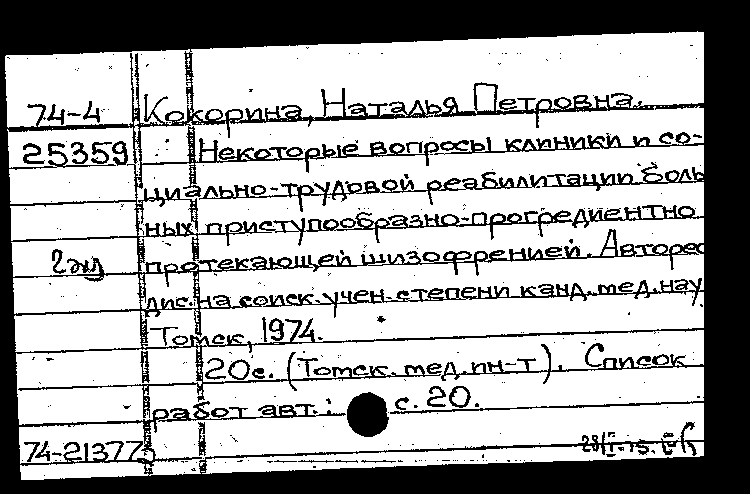 74-4 Кокорина, Наталья Петровна.
25359 Некоторые вопросы клиники и со-
циально-трудовой реабилитации боль
ных приступообразно-прогредиентно
2 экз протекающей шизофренией. Авторес
дис. на соиск. учен. степени канд. мед. нау
Томск, 1974.
20с. (Томск. мед. ин-т). Список
работ авт.: с. 20.
74-21377